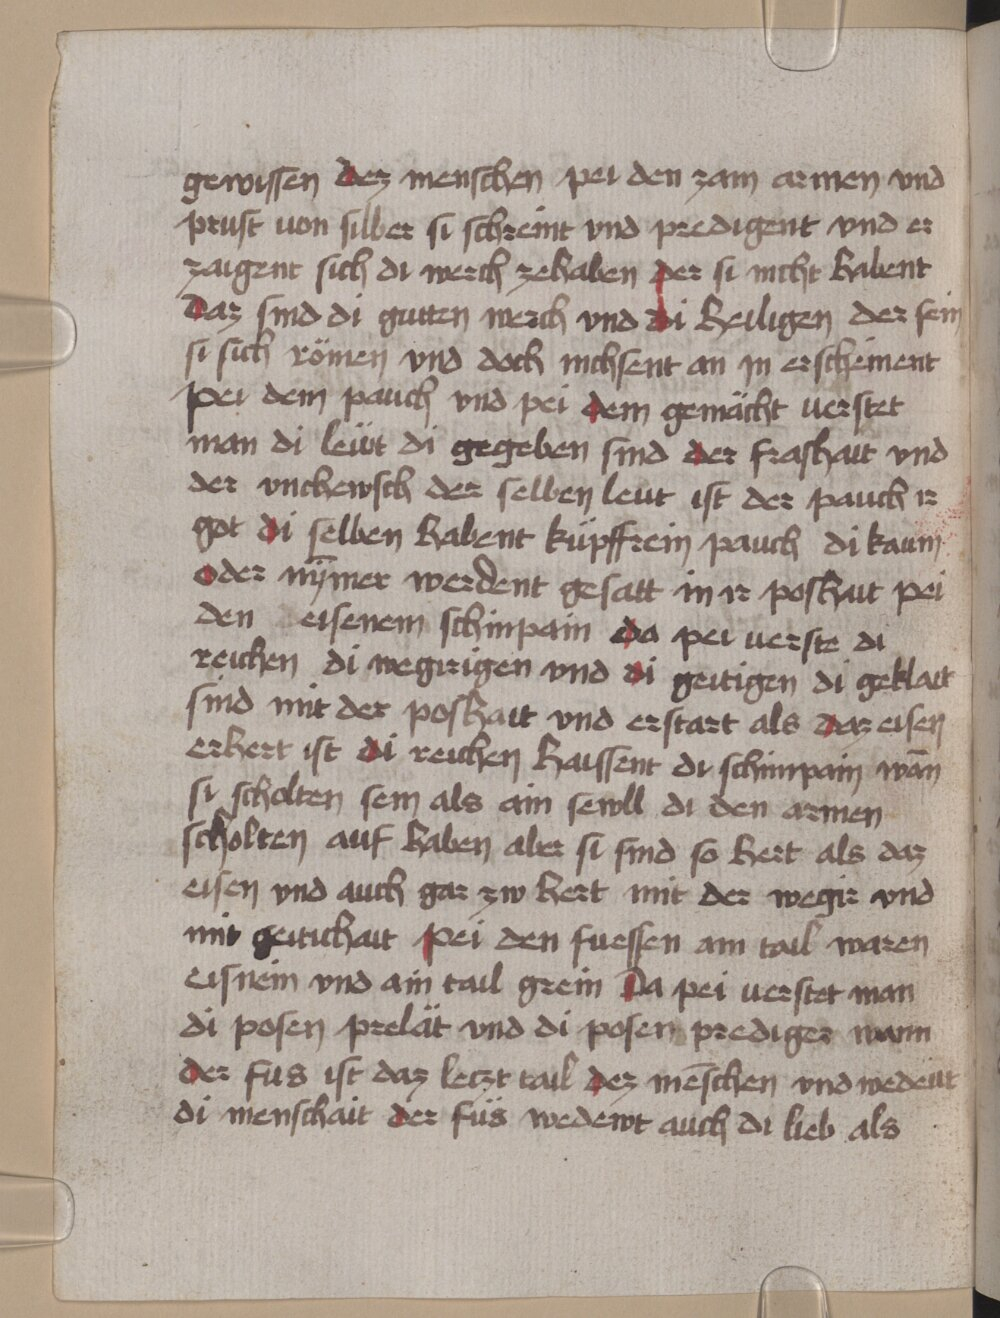 gewissen dez menschen pei den zam armen vnd
prust uon silber si schreint vnd predigent vnd er
zaigent sich di werch zehaben der si nicht habent
Daz sind di gutten werch vnd di heiligen der sein
si sich römen vnd doch nichsent an in erscheinent
Pei dem pauch vnd pei dem gemächt uerstet
man di leüt di gegeben sind der frashait vnd
der vnchewsch der selben leut ist der pauch ir
got di selben habent küpffrein pauch di kaum
oder nymer werdent gesatt in ir poshait pei
den eisenem schinpain da pei uerste di
reichen di wegirigen vnd di geitigen di geklait
sind mit der poshait vnd erstart als daz eisen
erhert ist di reichen haissent di schinpain wan̄
si scholten sein als ain sewll di den armen
scholten auf haben aber si sind so hert als daz
eisen vnd auch gar zw hert mit der wegir vnd
mit geitichait Pei den fuessen ain tail waren
eisnein vnd ain tail grein Da pei uerstet man
di posen prelät vnd di posen prediger wann
der fus ist daz leczt tail dez mēschen vnd wedeut
di menschait der füs wedewt auch di lieb als